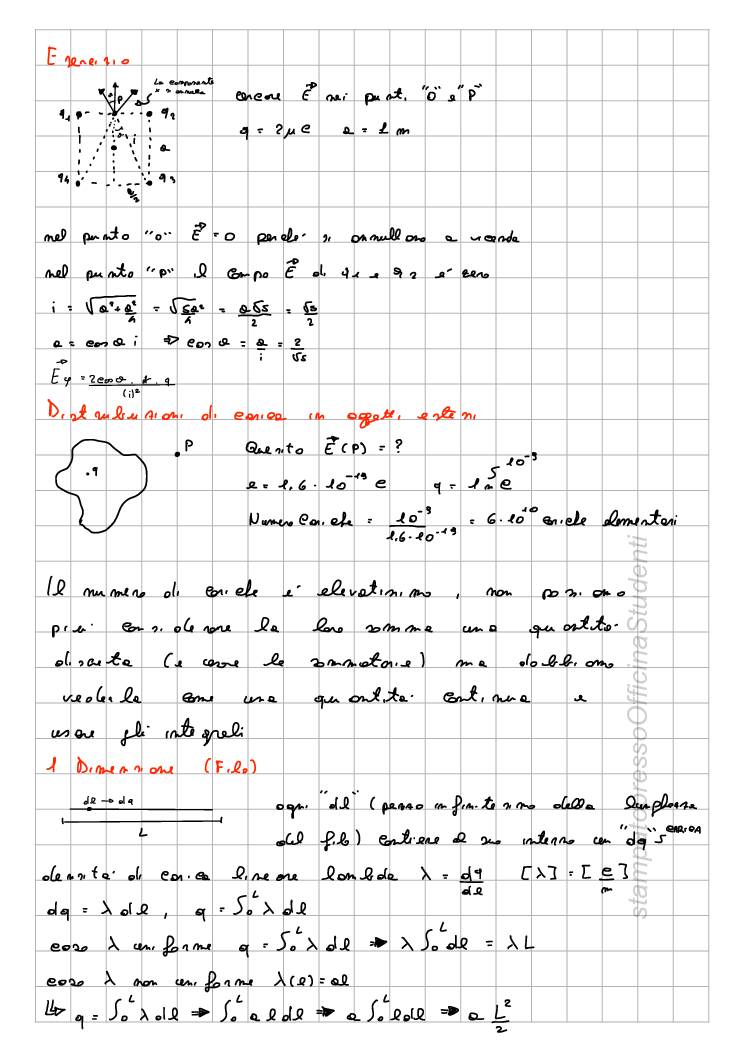 Esercizio
La componente
x si annulla
P
q1 q2
a
i
q4 q3
a/2
cercare E⃗ nei punti "O" e "P"
q = 2μC a = 1 m
nel punto "o" E⃗ = 0 perché si annullano a vicenda
nel punto "p" il campo E⃗ di q1 e q2 è zero
i = √(a² + a²/4) = √(5a²/4) = a√5/2 = √5/2
a = cosθ i ⇒ cosθ = a/i = 2/√5
E⃗y = 2cosθ · k · q / (i)²
Distribuzioni di carica in oggetti estesi
.q
P
Quanto E⃗(P) = ?
e = 1,6 · 10⁻¹⁹ C q = 1 nC 10⁻⁹
Numero Cariche = 10⁻⁹ / 1,6·10⁻¹⁹ = 6·10¹⁰ cariche elementari
Il numero di cariche è elevatissimo, non possiamo
più considerare la loro somma una quantità
discreta (e cosre le sommatorie) ma dobbiamo
vederla come una quantità continua e
usare gli integrali
1 Dimensione (Filo)
dl → dq
L
ogni "dl" (pezzo infinitesimo della lunghezza
del filo) contiene al suo interno un "dq" CARICA
densità di carica lineare lambda λ = dq/dl [λ] = [C/m]
dq = λ dl, q = ∫₀ᴸ λ dl
caso λ uniforme q = ∫₀ᴸ λ dl ⇒ λ ∫₀ᴸ dl = λL
caso λ non uniforme λ(l) = al
↳ q = ∫₀ᴸ λ dl ⇒ ∫₀ᴸ a l dl ⇒ a ∫₀ᴸ l dl ⇒ a L²/2
stampatopressoOfficinaStudenti